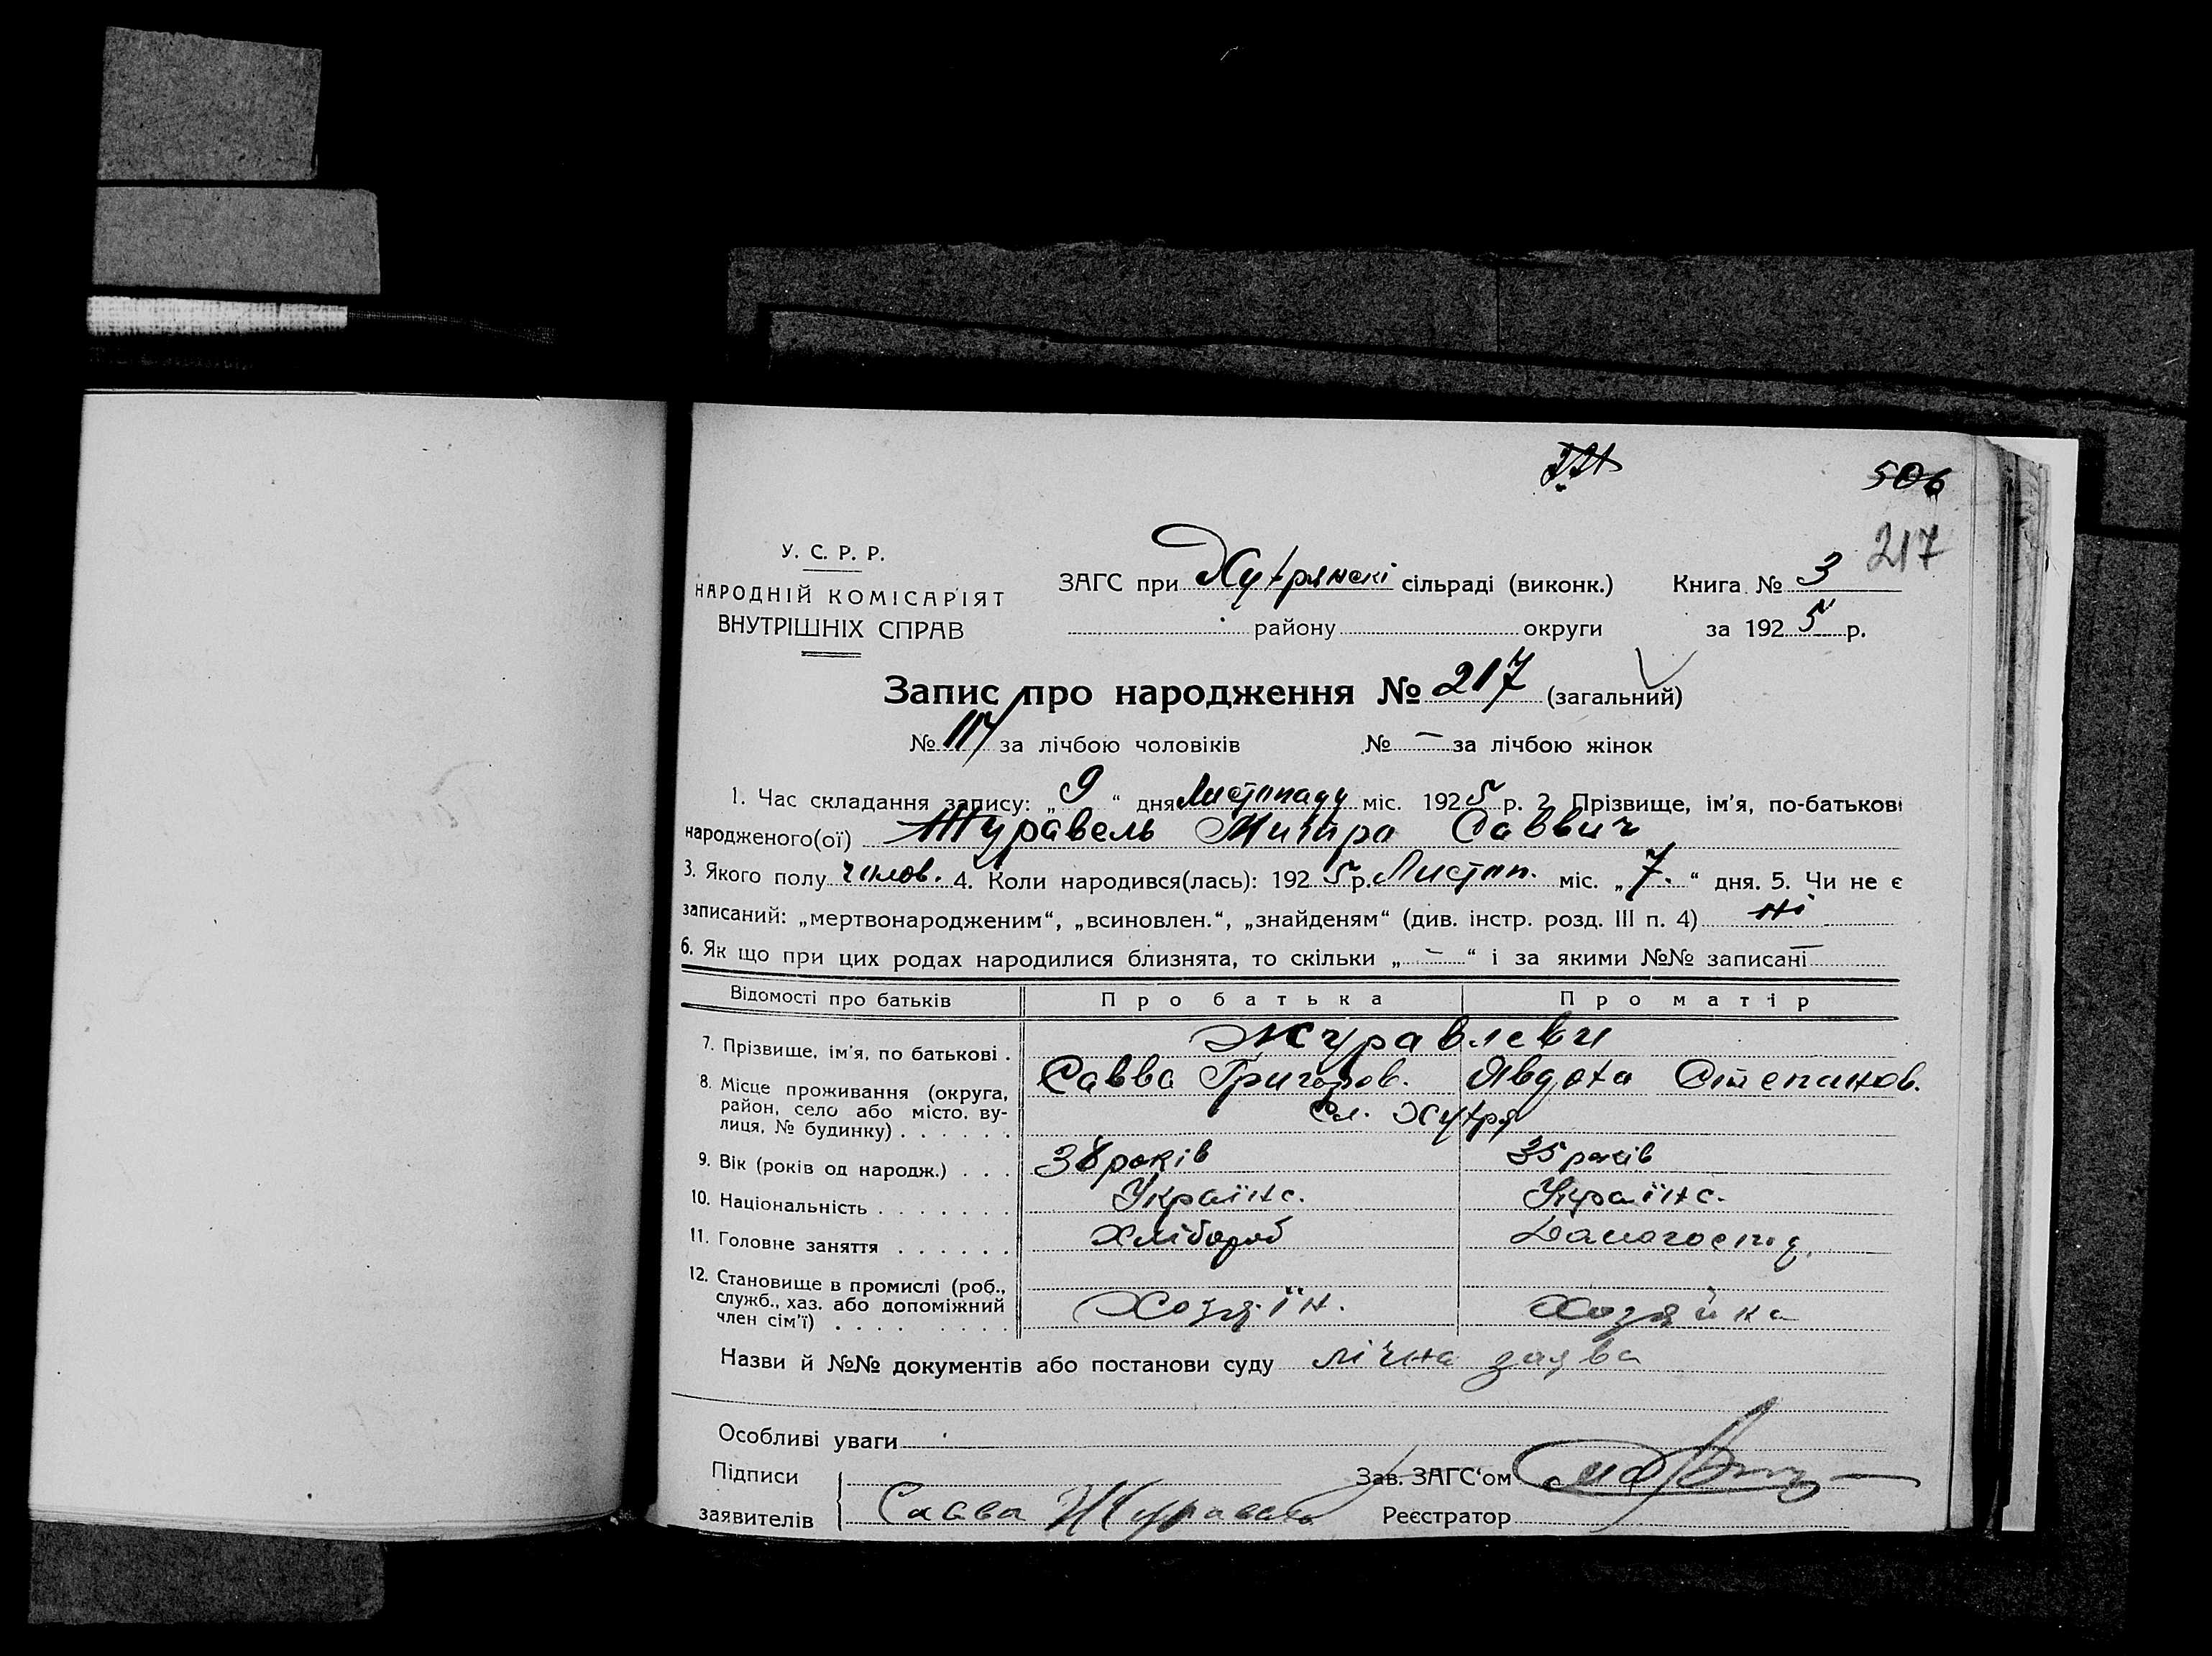 506
217
У. С. Р. Р.
НАРОДНІЙ КОМІСАРІЯТ
ВНУТРІШНІХ СПРАВ
ЗАГС при Хутрянскі сільраді (виконк.)
району округи
Книга № 3
за 1925 р.
Запис про народження № 217 (загальний)
№ 117 за лічбою чоловіків № — за лічбою жінок
1. Час складання запису: „ 9 “ дня Листопаду міс. 1925 р. 2. Прізвище, ім'я, по-батькові
народженого(ої) Журавель Митра Саввич
3. Якого полу чолов. 4. Коли народився(лась): 1925 р. Листоп. міс. „ 7. “ дня. 5. Чи не є
записаний: „мертвонародженим“, „всиновлен.“, „знайденям“ (див. інстр. розд. III п. 4) ні
6. Як що при цих родах народилися близнята, то скільки „ — “ і за якими №№ записані —
Відомості про батьків Про батька Про матір
7. Прізвище, ім'я, по батькові . Журавлеви
Савва Григоров. Явдоха Степанов.
8. Місце проживання (округа,
район, село або місто, ву-
лиця, № будинку) . . . . . . Сл. Хутря
9. Вік (років од народж.) . . . 38 років 35 років
10. Національність . . . . . . . Українс. Українс.
11. Головне заняття . . . . . . Хлібороб Домогоспод.
12. Становище в промислі (роб.,
служб., хаз. або допоміжний
член сім'ї) . . . . . . . . Хозяїн. Хозяйка
Назви й №№ документів або постанови суду лічна заява
Особливі уваги
Підписи
заявителів Савва Журавель
Зав. ЗАГС'ом
Реєстратор